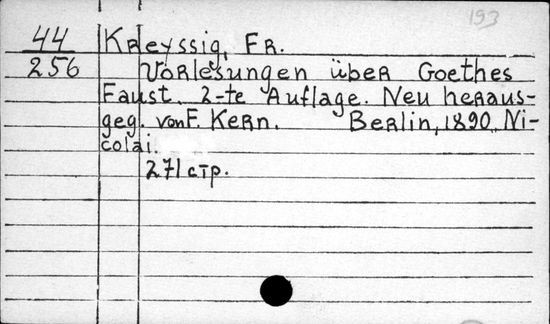 193
44 Kreyssig, Fr.
256 Vorlesungen über Goethes
Faust. 2-te Auflage. Neu heraus-
geg. von F. Kern. Berlin, 1890. Ni-
colai.
271 стр.